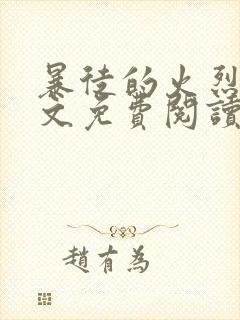 暴徒的火烈
文免費閱讀
趙有為